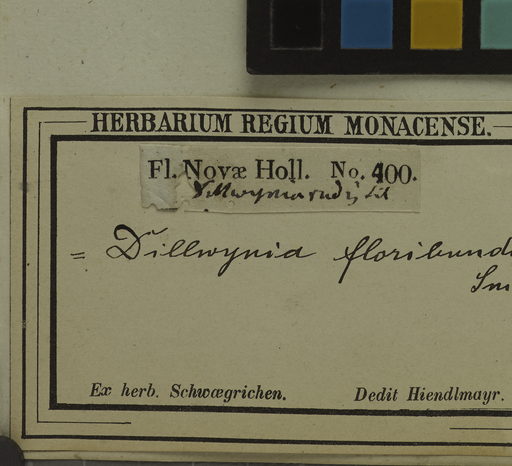 HERBARIUM REGIUM MONACENSE.
Fl. Novæ Holl. No. 400.
Dillwynia rudis Sib
= Dillwynia floribunda
Sm
Ex herb. Schwœgrichen. Dedit Hiendlmayr.